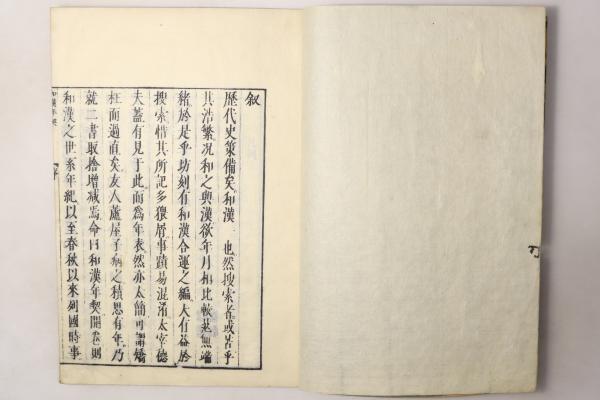 叙
歴代史策備矣和漢一也然搜索者或苦乎
其浩繁况和之與漢欲年月相比較甚無端
緒於是乎坊刻有和漢合運之編大有益於
搜索惜其所記多猥屑事蹟易混淆太宰德
夫蓋有見于此而爲年表然亦太簡可謂矯
枉而過直矣友人蘆屋子病之積思有年乃
就二書取捨增减焉命曰和漢年契開卷則
和漢之世系年紀以至春秋以來列國時事
和漢年契
序